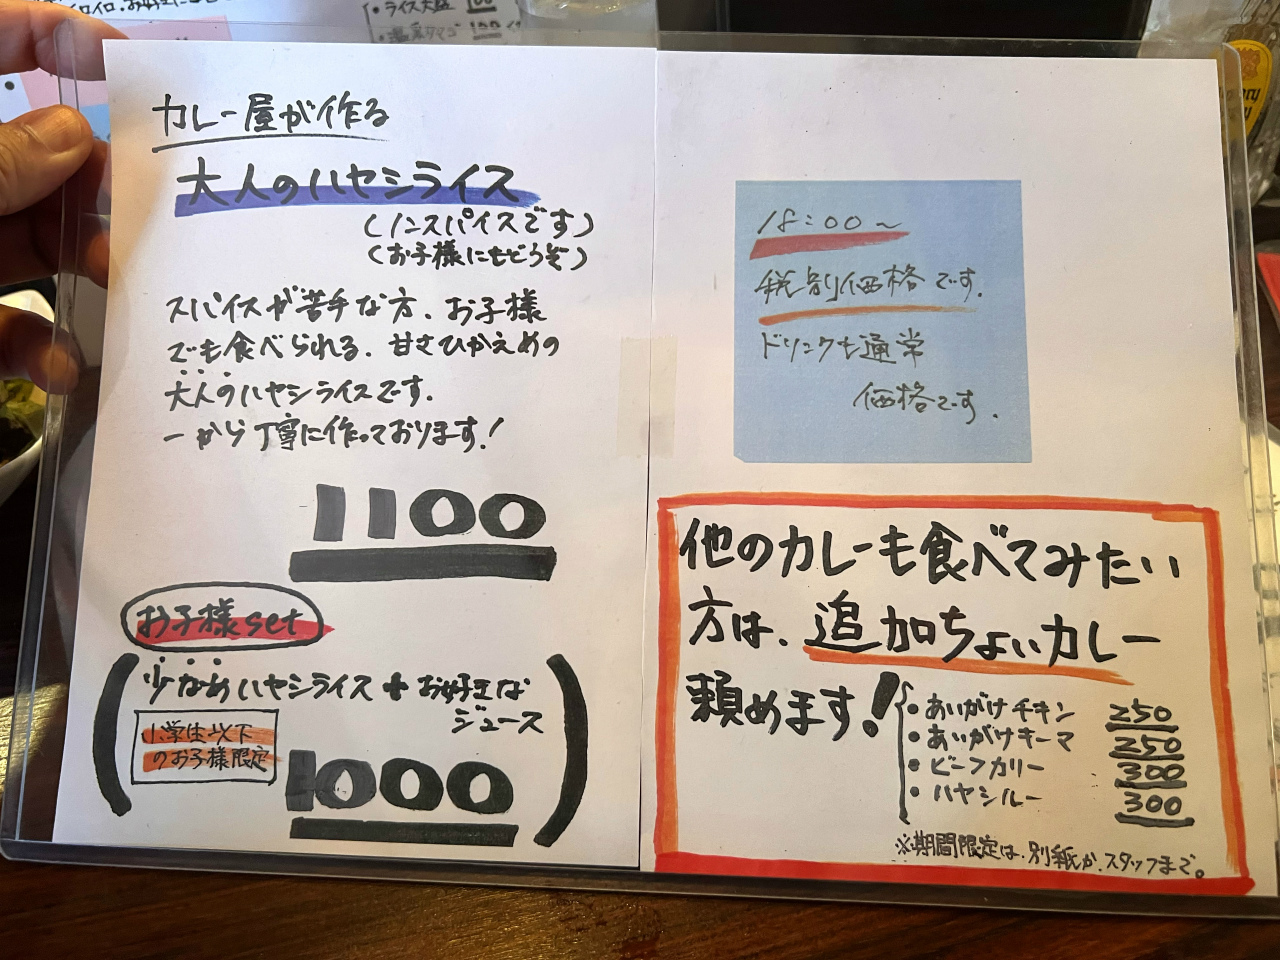 イロイロ、お好きに
・ライス大盛 100
カレー屋が作る
大人のハヤシライス
(ノンスパイスです)
(お子様にもどうぞ)
スパイスが苦手な方、お子様
でも食べられる、甘さひかえめの
大人のハヤシライスです。
一から丁寧に作っております!
1100
お子様set
少なめハヤシライス+お好きな
ジュース
小学生以下
のお子様限定
1000
18:00～
税別価格です。
ドリンクも通常
価格です。
他のカレーも食べてみたい
方は、追加ちょいカレー
頼めます!
・あいがけチキン 250
・あいがけキーマ 250
・ビーフカリー 300
・ハヤシルー 300
※期間限定は、別紙か、スタッフまで。